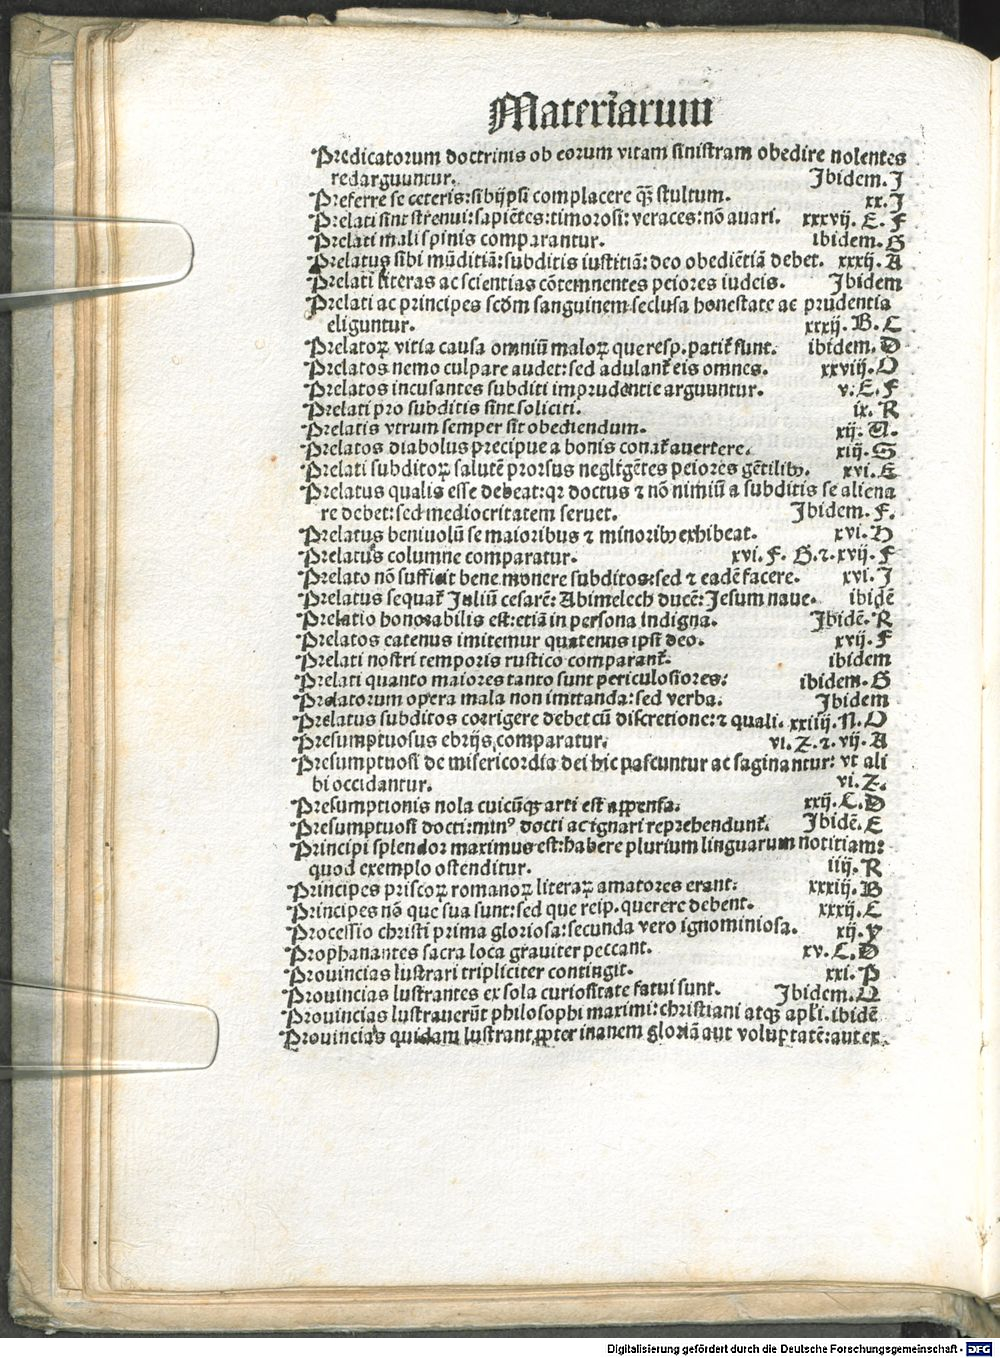 Materiarum
Predicatorum doctrinis ob eorum vitam sinistram obedire nolentes
redarguuntur. Ibidem. I
Preferre se ceteris: sibijpsi complacere qȝ stultum. xx. I
Prelati sint strenui: sapiētes: timorosi: veraces: nō auari. xxxvij. E. F
Prelati mali spinis comparantur. ibidem. G
Prelatus sibi mūditiā: subditis iustitiā: deo obediētiā debet. xxxij. A
Prelati literas ac scientias cōtemnentes peiores iudeis. Ibidem
Prelati ac principes scdm sanguinem seclusa honestate ac prudentia
eliguntur. xxxij. B. C
Prelatoꝝ vitia causa omniū maloꝝ que resp. patit᷑ sunt. ibidem. D
Prelatos nemo culpare audet: sed adulant᷑ eis omnes. xxviij. O
Prelatos incusantes subditi imprudentie arguuntur. v. E. F
Prelati pro subditis sint soliciti. ix. R
Prelatis vtrum semper sit obediendum. xij.
Prelatos diabolus precipue a bonis conat᷑ auertere. xiij. S
Prelati subditoꝝ salutē prorsus negligētes peiores gētilibꝰ. xvi. E
Prelatus qualis esse debeat: qꝛ doctus ⁊ nō nimiū a subditis se aliena
re debet: sed mediocritatem seruet. Ibidem. F.
Prelatus beniuolū se maioribus ⁊ minoribꝰ exhibeat. xvi. H
Prelatus columne comparatur. xvi. F. G. ⁊. xvij. F
Prelato nō sufficit bene monere subditos: sed ⁊ eadē facere. xvi. I
Prelatus sequat᷑ Juliū cesarē: Abimelech ducē: Jesum naue. ibidē
Prelatio honorabilis est: etiā in persona indigna. Ibidē. R
Prelatos eatenus imitemur quatenus ipsi deo. xvij. F
Prelati nostri temporis rustico comparant᷑. ibidem
Prelati quanto maiores tanto sunt periculosiores: ibidem. G
Prelatorum opera mala non imitanda: sed verba. Ibidem
Prelatus subditos corrigere debet cū discretione: ⁊ quali. xxiiij. N. O
Presumptuosus ebrijs comparatur. vi. Z. ⁊. vij. A
Presumptuosi de misericordia dei hic pascuntur ac saginantur: vt ali
bi occidantur. vi. Z.
Presumptionis nola cuicūqȝ arti est appensa. xxij. C. D
Presumptuosi docti: minꝰ docti ac ignari reprehendunt᷑. Ibidē. E
Principi splendor maximus est: habere plurium linguarum notitiam:
quod exemplo ostenditur. iiij. R
Principes priscoꝝ romanoꝝ literaꝝ amatores erant: xxxiij. B
Principes nō que sua sunt: sed que reip. querere debent. xxxij. C
Processio christi prima gloriosa: secunda vero ignominiosa. xij. Y
Prophanantes sacra loca grauiter peccant. xv. C. D
Prouincias lustrari tripliciter contingit. xxi. P
Prouincias lustrantes ex sola curiositate fatui sunt. Ibidem. Q
Prouincias lustrauerūt philosophi maximi: christiani atqȝ apl'i. ibidē
Prouincias quidam lustrant ꝓpter inanem gloriā aut voluptatē: aut ex
Digitalisierung gefördert durch die Deutsche Forschungsgemeinschaft - DFG